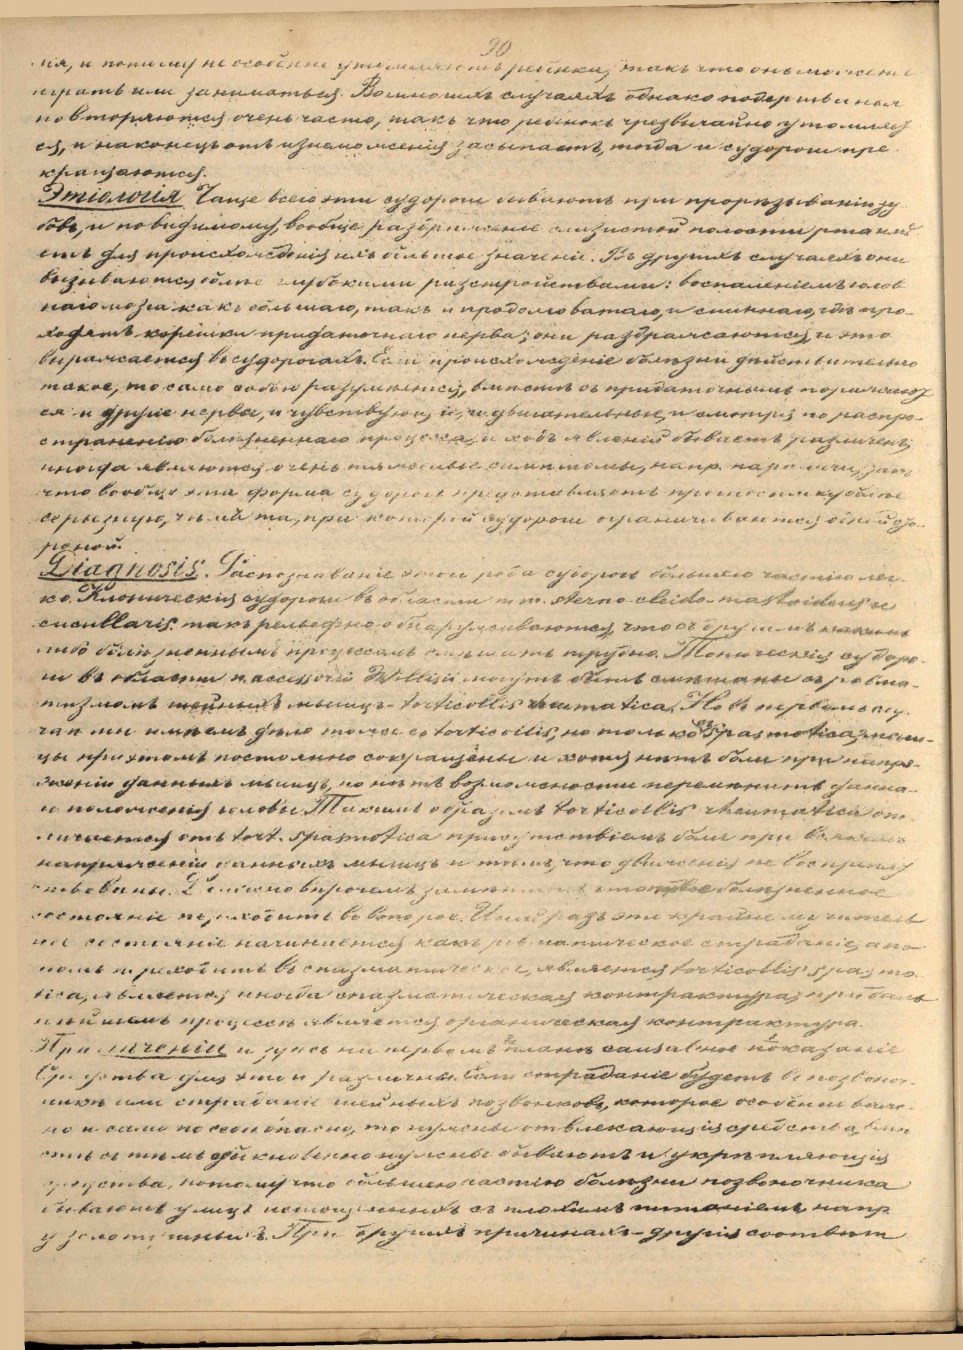 90
ня, и потому не особенно утомляютъ ребенка, такъ что онъ можетъ
играть или заниматься. Во многихъ случаяхъ однако подергиванія
повторяются очень часто, такъ что ребенокъ чрезвычайно утомляет
ся, и наконецъ отъ изнеможенія засыпаетъ, тогда и судороги пре
кращаются.
Этіологія Чаще всего эти судороги бываютъ при прорѣзываніи зу
бовъ, и повидимому, вообще раздраженіе слизистой полости рта имѣ
етъ для происхожденія ихъ большое значеніе. Въ другихъ случаяхъ они
вызываются болѣе глубокими разстройствами: воспаленіемъ голов
наго мозга какъ большаго, такъ и продолговатаго, и спиннаго, гдѣ про-
ходятъ корешки придаточнаго нерва; они раздражаются, и это
выражается въ судорогахъ. Если происхожденіе болѣзни дѣйствительно
такое, то само собою разумѣется, вмѣстѣ съ придаточнымъ поражают
ся и другіе нервы, и чувствующіе, и двигательные, и смотря по распро-
страненію болѣзненнаго процесса, и ходъ явленій бываетъ различенъ;
иногда являются очень тяжолые симптомы, напр. параличи, такъ
что вообще эта форма судорогъ представляетъ прогностику болѣе
серьезную, чѣмъ та, при которой судороги ограничиваются одной сто-
роной.
Diagnosis. Распознаваніе этого рода судорогъ большею частію лег-
ко. Клоническія судороги въ области m.m. sterno-cleido-mastoideus и
cucullaris такъ рельефно обнаруживаются, что съ другимъ какимъ
либо болѣзненнымъ процессомъ смѣшать трудно. Тоническія судоро-
ги въ области n. accessorii Willisii могутъ быть смѣшаны съ ревма-
тизмомъ шейныхъ мышцъ - torticollis rheumatica. Но въ первомъ слу-
чаѣ мы имѣемъ дѣло тоже съ torticollis, но только съ spasmotica; мыш-
цы при этомъ постоянно сокращены и хотя нѣтъ боли при напря-
женіи данныхъ мышцъ, но нѣтъ возможности перемѣнить данна-
го положенія головы. Такимъ образомъ torticollis rheumatica от-
личается отъ tort. spasmotica присутствіемъ боли при всякомъ
напряженіи данныхъ мышцъ и тѣмъ, что движенія не воспрепят
ствованы. Должно впрочемъ замѣтить что первое болѣзненное
состояніе переходитъ во второе. Иной разъ это крайне мучитель
ное состояніе начинается какъ ревматическое страданіе, а по-
томъ переходитъ въ спазматическое, является torticollis spasmo-
tica, является иногда спазматическая контрактура, при даль
нѣйшемъ процессѣ является органическая контрактура.
При леченіи и здѣсь на первомъ планѣ causal'ное показаніе
Средства для этого различны. Если страданіе будетъ въ позвоноч-
никѣ или страданіе шейныхъ позвонковъ, которое особенно важ-
но и само по себѣ опасно, то нужны отвлекающія средства, вмѣ
стѣ съ тѣмъ обыкновенно нужны бываютъ и укрѣпляющія
средства, потому что большею частію болѣзни позвоночника
бываютъ у лицъ истощенныхъ съ плохимъ питаніемъ, напр
у золотушныхъ. При другихъ причинахъ - другія соотвѣт